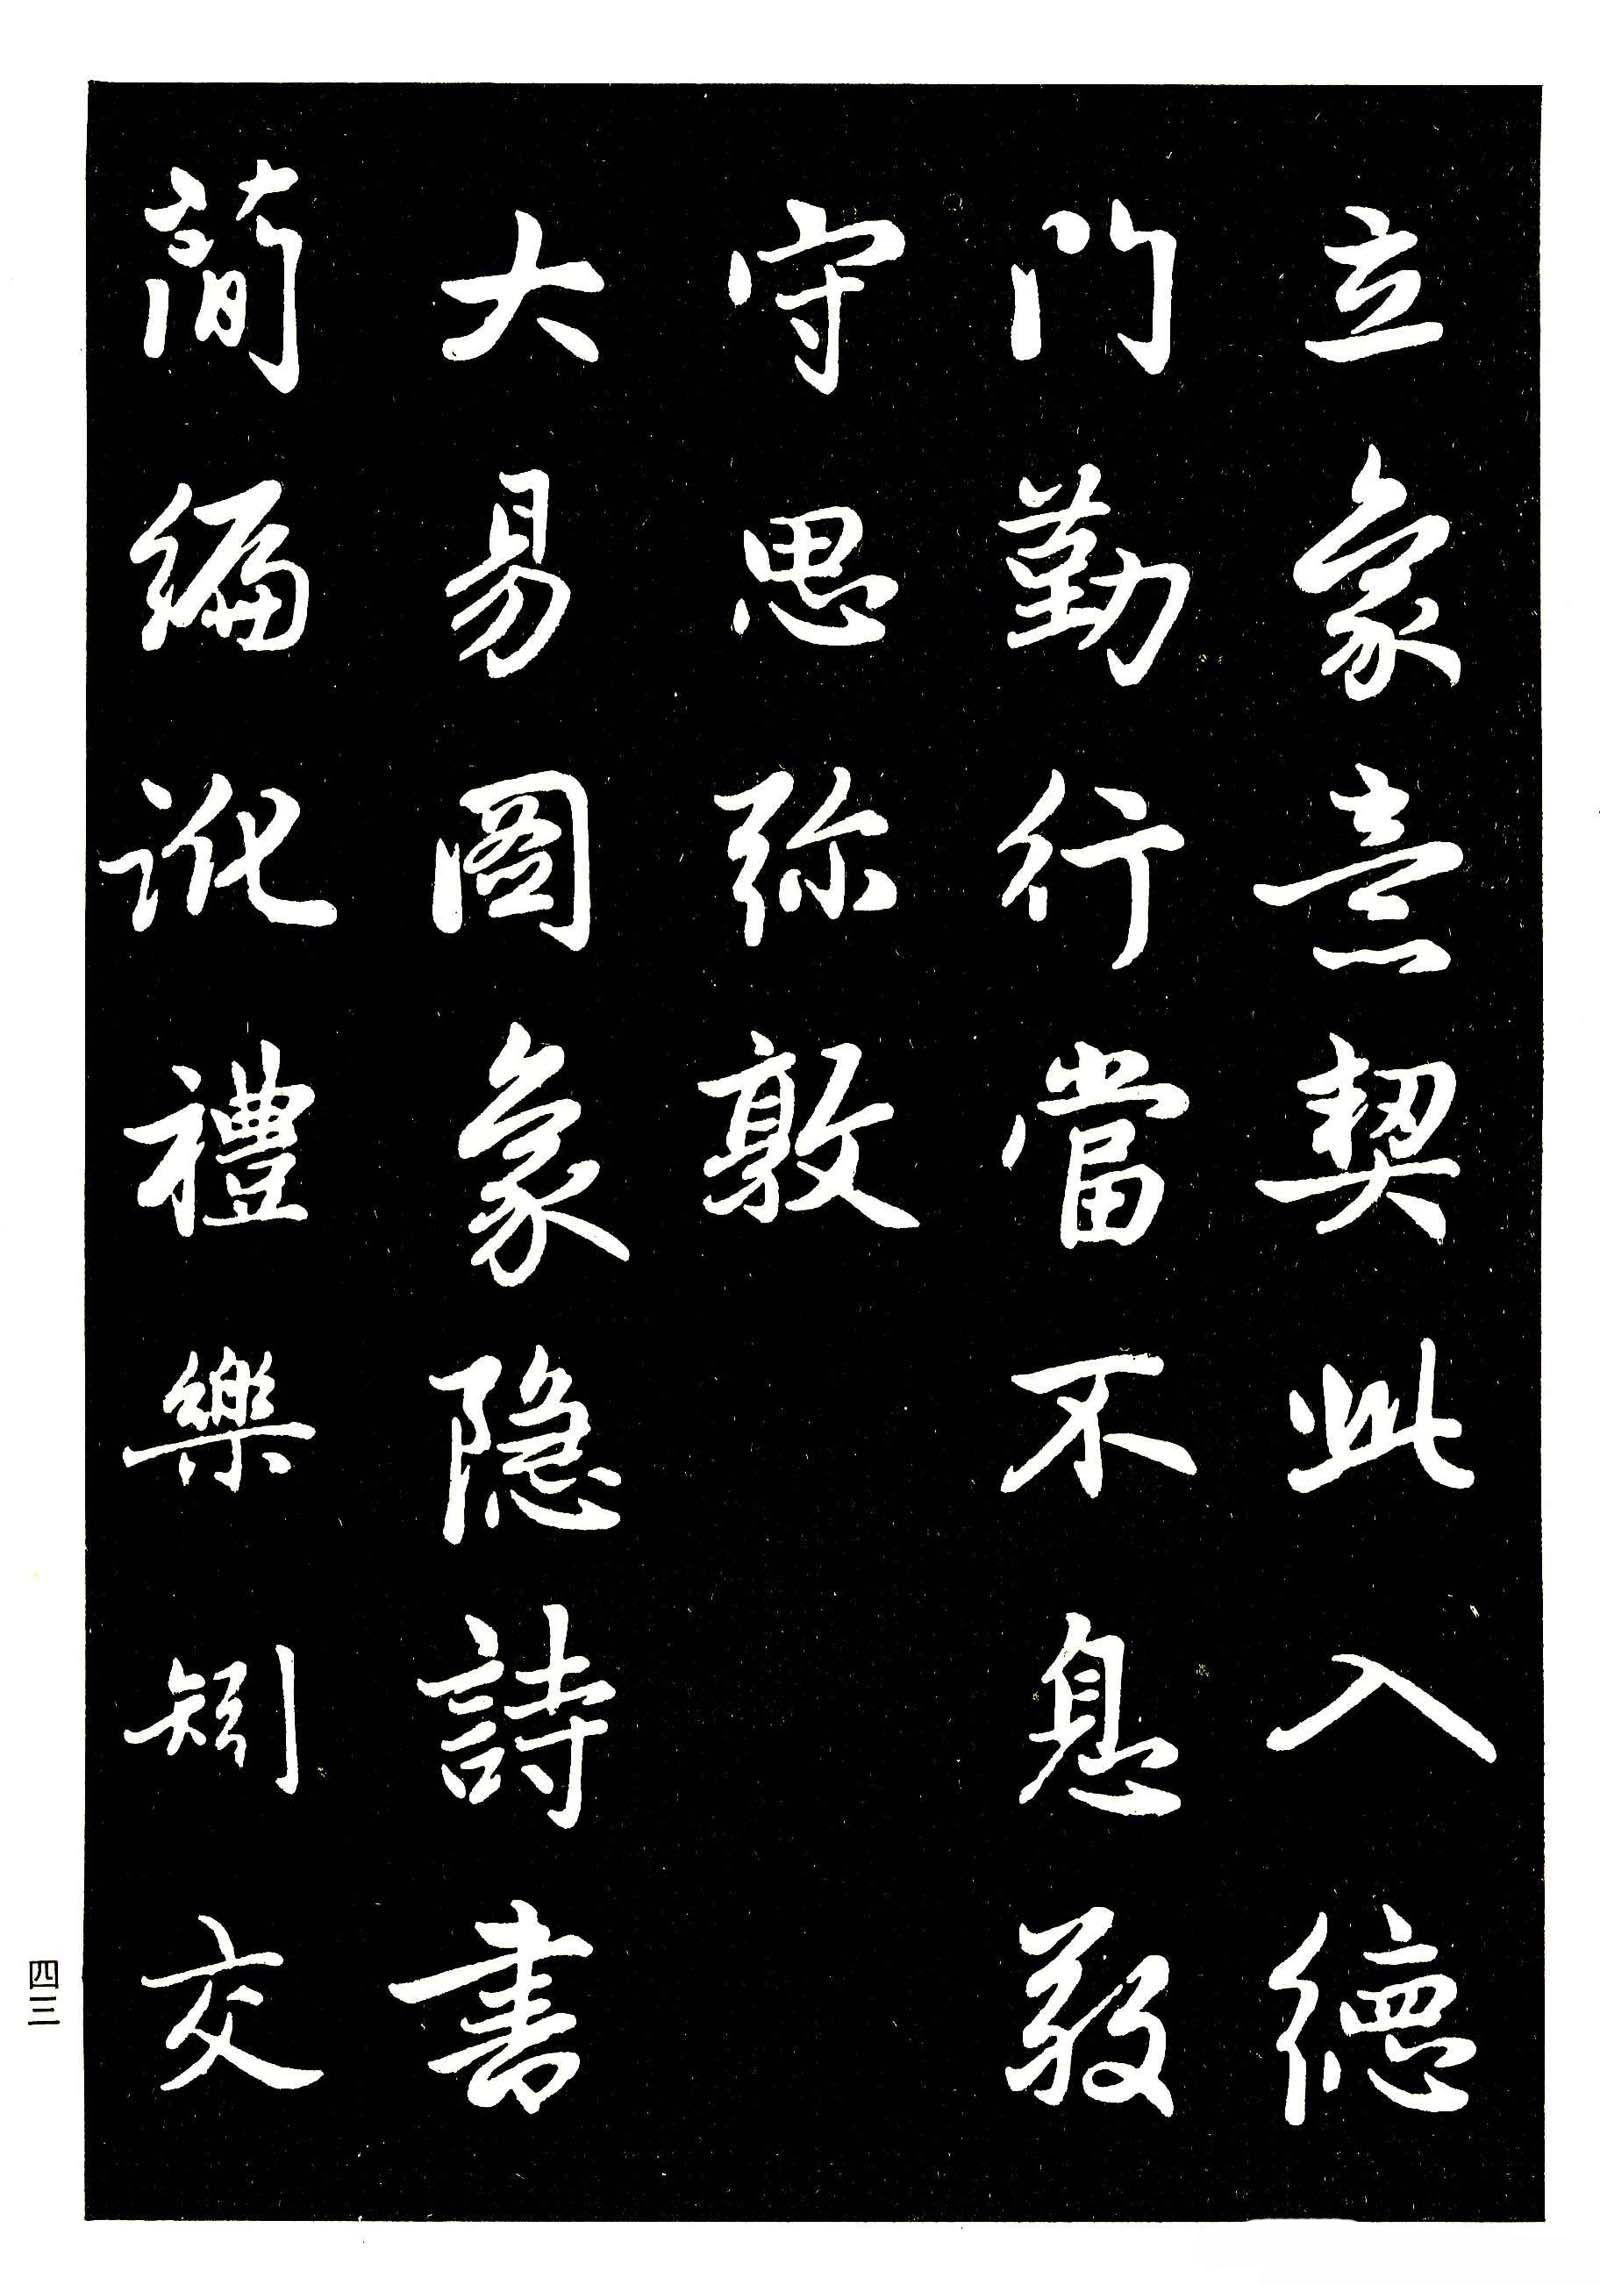 立象意契此入德
门勤行當不息敬
守思弥敦
大易圖象隐詩書
簡編訛禮樂矧交
四三